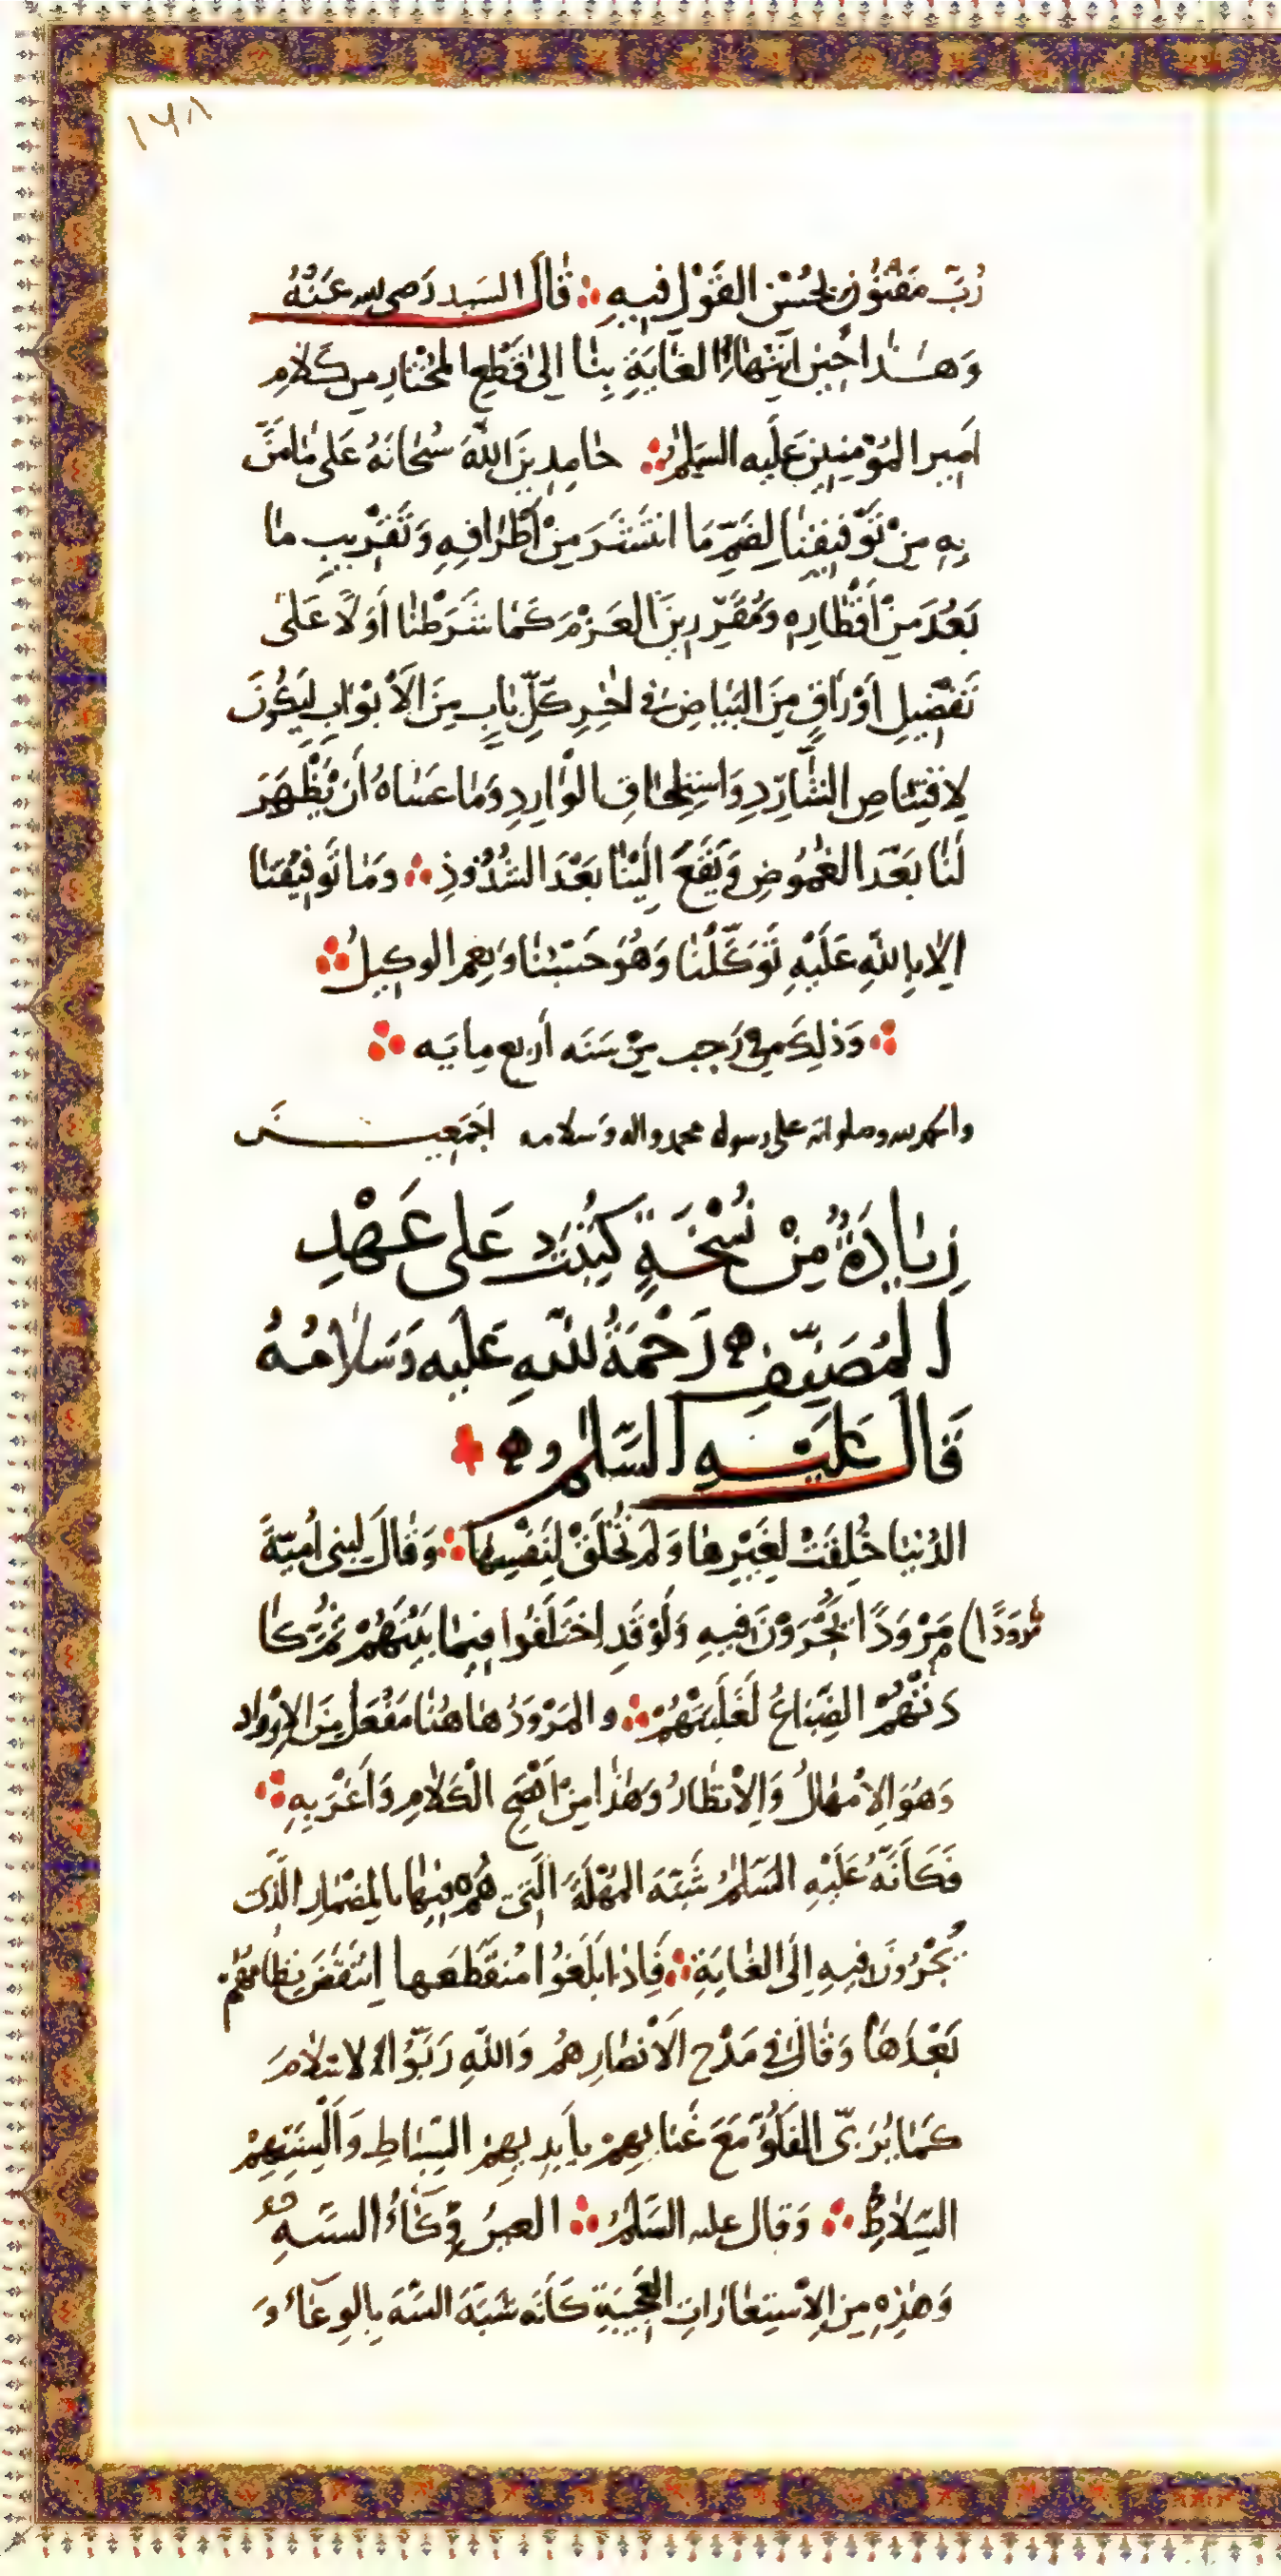 ١٦٨
رُبَّ مَفْتُونٍ بِحُسْنِ القَوْلِ فِيهِ قَالَ السَّيد رَضي الله عَنْهُ
وَهٰذا حِينُ انْتِهَاءِ الغَايَةِ بِنَا إِلى قَطْعِ المُخْتَارِ مِن كَلَامِ
أَمِيرِ المُؤْمِنِينَ عَلَيه السَّلٰمُ حَامِدِينَ اللّٰهَ سُبْحَانَهُ عَلَى مَا مَنَّ
بِهِ مِنْ تَوْفِيقِنَا لِضَمِّ مَا انْتَشَرَ مِنْ أَطْرَافِهِ وَتَقْرِيبِ مَا
بَعُدَ مِنْ أَقْطَارِهِ وَمُقَرِّرِينَ العَزْمَ كَمَا شَرَطْنَا أَوَلًا عَلَى
تَفْضِيلِ أَوْرَاقٍ مِنَ البَيَاضِ فِي آخِرِ كُلِّ بَابٍ مِنَ الأَبْوَابِ لِيَكُونَ
لِاقْتِنَاصِ الشَّارِدِ وَاسْتِلْحَاقِ الوَارِدِ وَمَا عَسَاهُ أَنْ يَظْهَرَ
لَنَا بَعْدَ الغُمُوضِ وَيَقَعَ إِلَيْنَا بَعْدَ الشُّذُوذِ وَمَا تَوْفِيقُنَا
إِلَّا بِاللّٰهِ عَلَيْهِ تَوَكَّلْنَا وَهُوَ حَسْبُنَا وَنِعْمَ الوَكِيلُ
وَذٰلِكَ فِي رَجَب مِنْ سَنَه أَربع مِأيَه
والحمد لله وصلواته على رسوله محمد واله وَسلامه اجْمَعِينَ
زِيَادَةٌ مِنْ نُسْخَةٍ كُتِبَتْ عَلى عَهْدِ
المُصَنِّفِ رَحْمَةُ اللّٰهِ عَلَيه وَسَلَامُهُ
قَالَ عَلَيْهِ السَّلٰمُ
الدُّنْيَا خُلِقَتْ لِغَيْرِهَا وَلَمْ تُخْلَقْ لِنَفْسِهَا وَقَالَ لِبَنِي أُمَيَّةَ
مَرْوَدًا يَجْرُونَ فِيهِ وَلَوْ قَدِ اخْتَلَفُوا فِيمَا بَيْنَهُمْ ثُمَّ كَا
دَتْهُمُ الضِّبَاعُ لَغَلَبَتْهُمْ وَالمَرْوَدُ هَاهُنَا مَفْعَل مِنَ الإِرْوَاد
وَهُوَ الإِمْهَالُ وَالإِنْظَارُ وَهٰذَا مِنْ أَفْصَحِ الْكَلَامِ وَأَغْرَبِهِ
فَكَأَنَّهُ عَلَيْهِ السَّلٰمُ شَبَّهَ المُهْلَةَ الَّتِي هُم فِيهَا بِالمِضْمَارِ الَّذِي
يَجْرُونَ فِيهِ إِلَى الغَايَةِ فَإِذَا بَلَغُوا مُنْقَطَعَها انْتَقَضَ نِظَامُهُمْ
بَعْدَهَا وَقَالَ فِي مَدْحِ الأَنْصَارِ هُمْ وَاللّٰهِ رَبَّوُا الإِسْلَامَ
كَمَا يُرَبَّى الفَلُوُّ مَعَ غَنَائِهِمْ بِأَيدِيهِمْ السِّبَاطِ وَأَلْسِنَتِهِمْ
السِّلَاطِ وَقَال عليه السَّلٰمُ العَينُ وِكَاءُ السَّهِ
وَهٰذِهِ مِنَ الإِسْتِعَارَاتِ العَجِيبَةِ كَأَنَّه شَبَّهَ السَّهَ بِالوِعَاءِ وَ